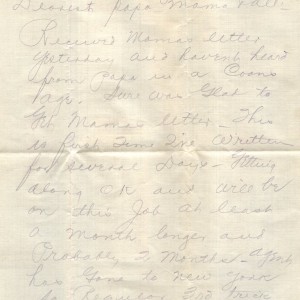 Dearest Papa Mama & all:
Received Mamas letter
yesterday and havent heard
from Papa in a Coons
age. Sure was Glad to
get Mamas letter - This
is first time I've written
for several Days - Getting
along OK and will be
on this Job at least
a month longer and
Probably 2 Months -
has Gone to New York